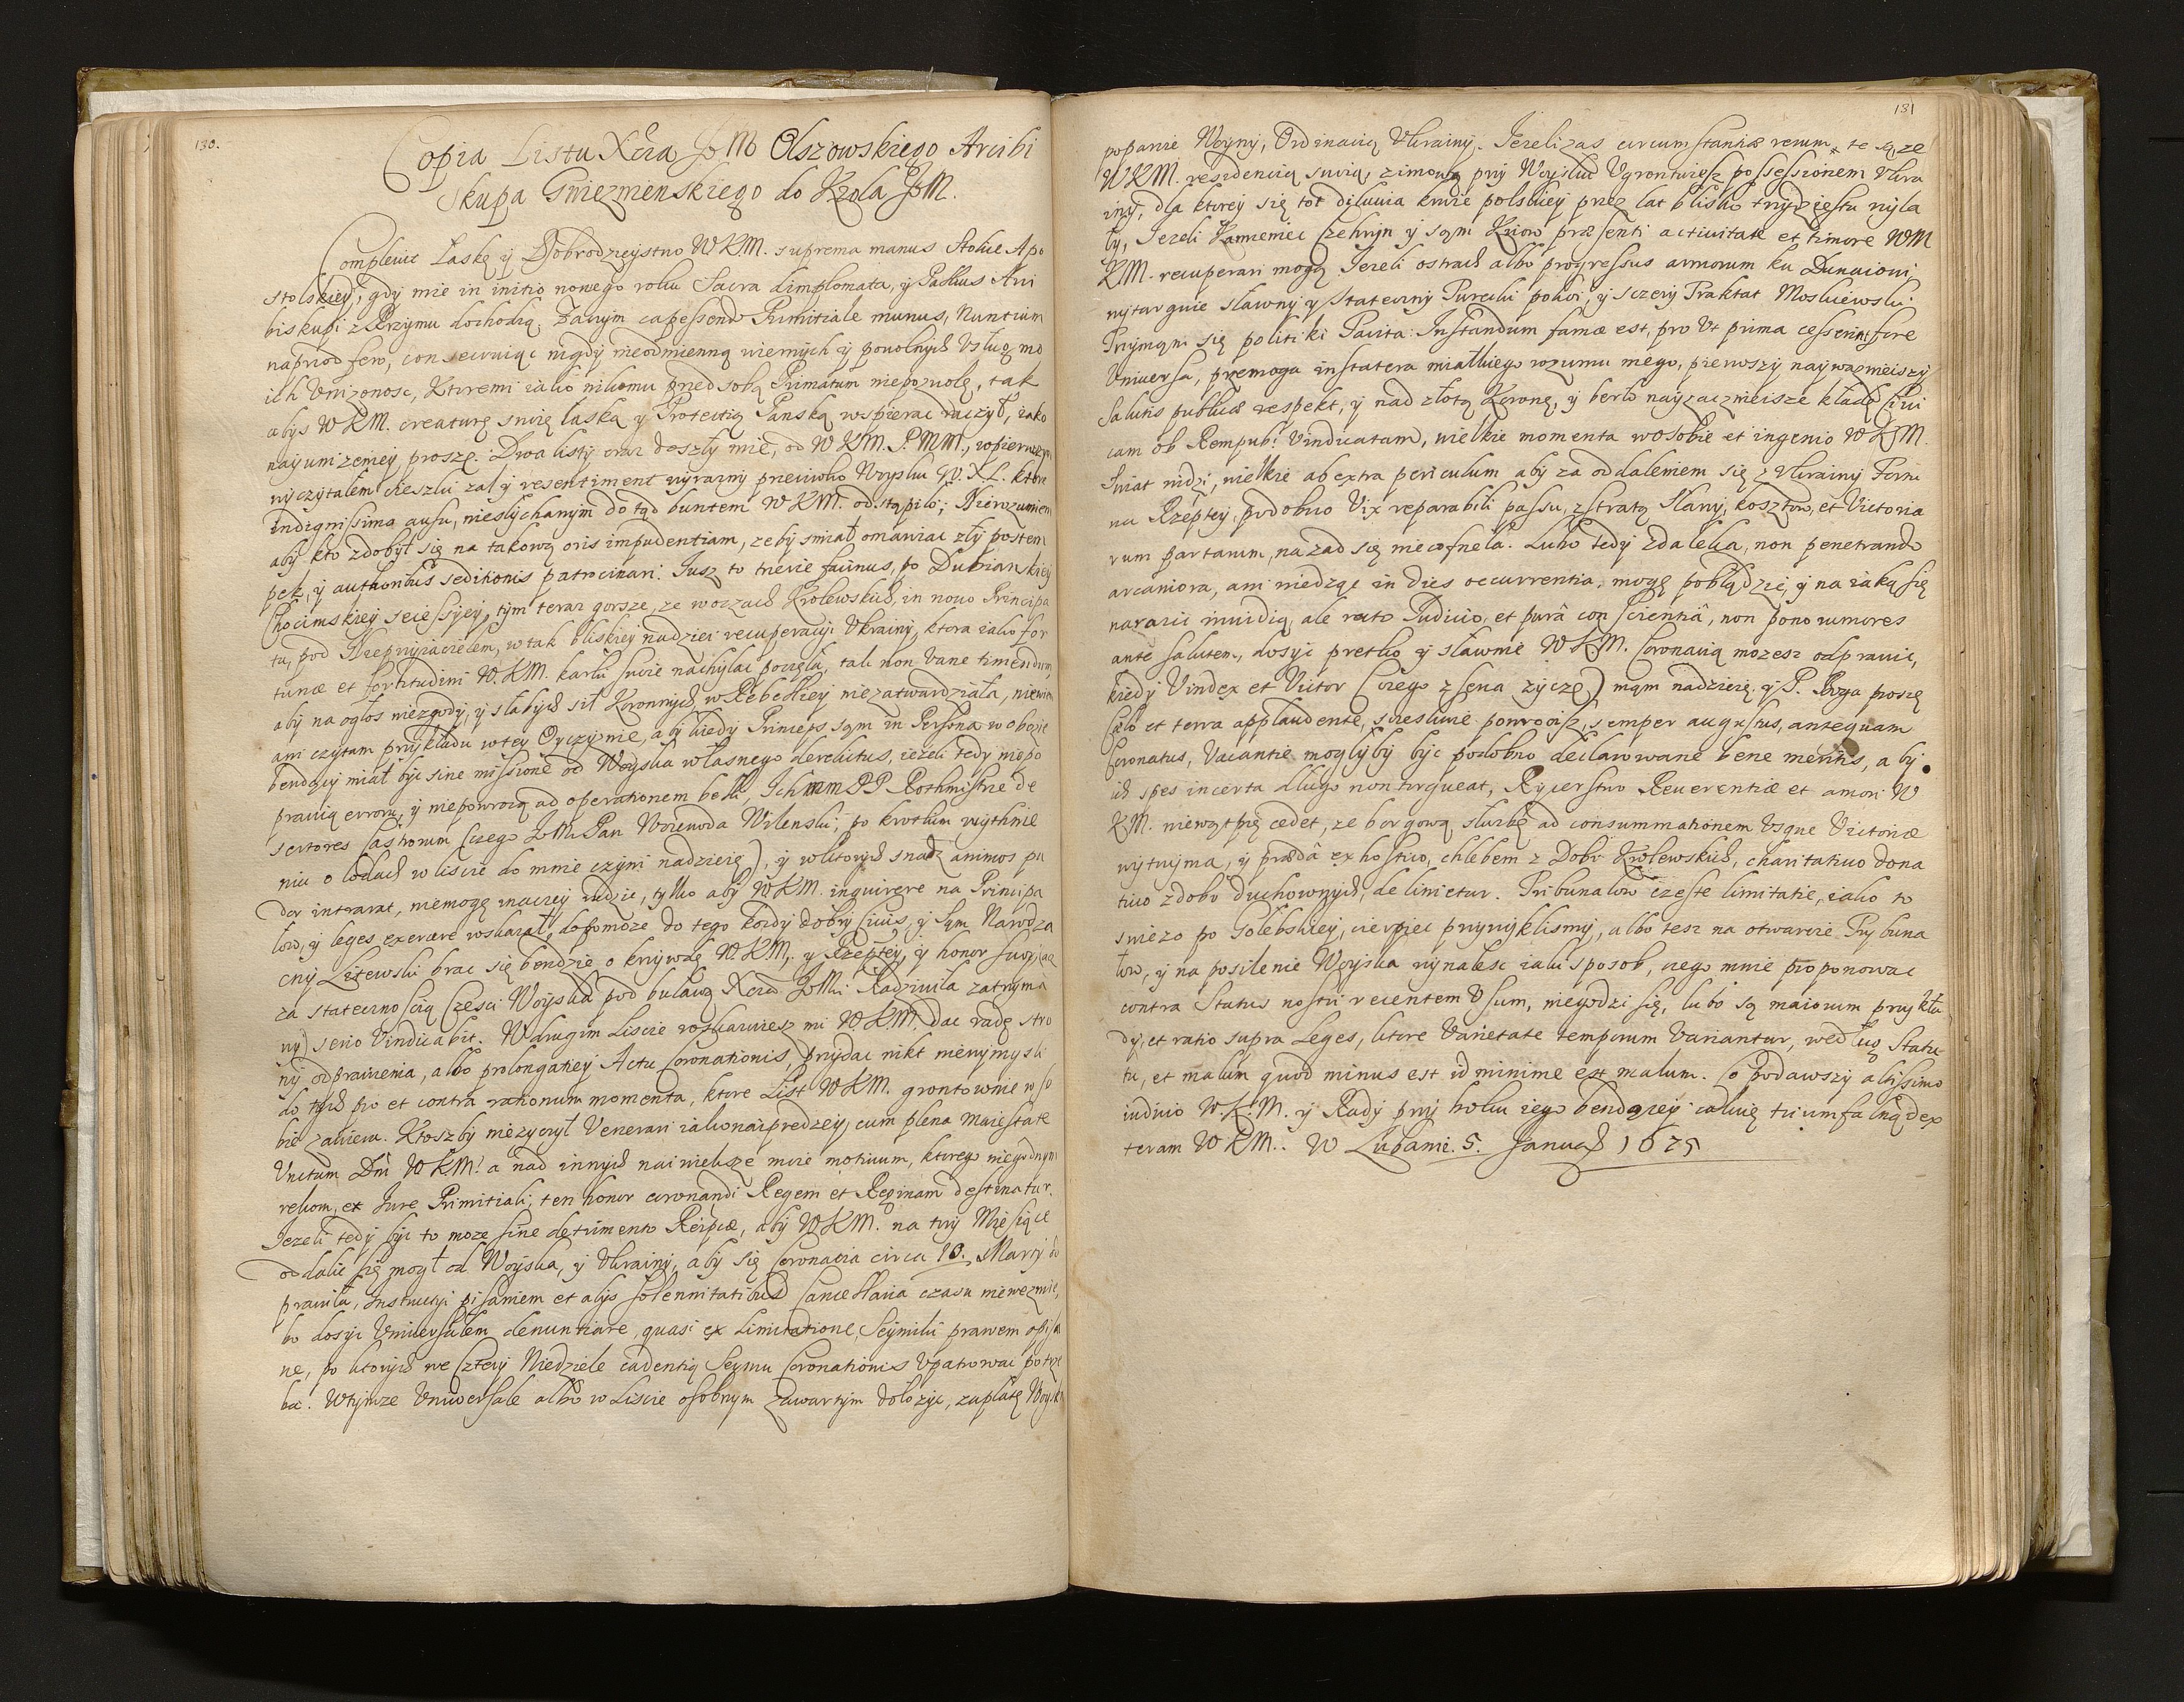 130.
Copia Listu Xcia JoM Olszowskiego Arcibi
skupa Gniezmienskiego do Krola JoM.
Complevit Łaskę ÿ Dobrodzieystwo W.K.M. suprema manus Stolice Apo
stolskieÿ, gdÿ mie in initio nowego roku Sacra Limplomata, ÿ Pallius Arci
biskupi z Rzÿmu dochodzą. Zaczÿm capessendo Primitiale munus, Nuncium
naprzod ſero, consecruiąc nigdÿ nieodmienną wiernÿch ÿ powolnÿch Usług mo
ich Unizonosc, Ktoremi iako nikomu przed sobą Primatum niepozwolę, tak
abÿs WKM. creaturę swoię łaską ÿ Protectią Panską wspierac raczÿł, iako
naÿunizenieÿ proszę. Dwa listÿ oraz doszłÿ mie, od WKM. P.MM., wpierwszÿm
wÿczÿtalem cieszki zal ÿ resentiment wÿraznÿ przeciwko Woÿsku W.X.L. ktore
indignissimo ausu, nieslÿchanÿm do tąd buntem WKM. odstąpiło; Nierozumiem
abÿ kto zdobÿł się na takową oris impudentiam, zebÿ smiał omawiac złÿ postem
pek, ÿ authoribus seditionis patrocinari. Jusz to trzecie facinus, po Dubianskieÿ
Chocimskieÿ secessÿeÿ, tÿm teraz gorsze, ze w oczach Krolewskich, in nowo Principa
tu, pod Nieprzÿiacielem, w tak bliskieÿ nadziei recuperacÿi Ukrainÿ, ktora iako for
tunæ et fortitudini W.KM. karki swoie nachÿlac poczęła, tak non vane timendum,
abÿ na ogłos niezgodÿ, ÿ słabÿch sił Koronnÿch, w Rebelliey niezatwardziała, niewiem
ani czÿtam przÿkładu w teÿ Oÿczÿznie, abÿ kiedÿ Princeps sąm in Persona w oboźie
bendący miał bÿc sine missione od Woÿska własnego derelictus, iezeli tedÿ niepo
prawią erroru, ÿ niepowrocą ad operationem belli, Ich mm PP Rothmistrze de
sertores Castrorum (czego JoMc Pan Woiewoda Wilenski, po krotkim wÿtchnie
niu o lodach w liscie do mnie czÿni nadzieię), ÿ w ktorÿch snadz animos pu
dor intrarat, niemogę inaczeÿ radzic, tÿlko abÿ WKM. inquirere na Principa
low, ÿ leges exercere wskazał, dopomoze do tego kozdÿ dobrÿ Civis, ÿ sąm Narod za
cnÿ Litewski brac się bendzie o krzÿwdę W.KM., ÿ Rzeptéÿ, ÿ honor swoÿ, (co
za statecznoscią Czesci Woÿska pod buławą Xcia JoMci Radziwiła zatrzÿma
nÿ) serio Vindicabit. W drugim Liscie roskazuiesz mi WKM. dac radę stro
nÿ odprawienia, albo prolongatieÿ Actu Coronationis, przÿdac nikt niewÿmÿsli
do tÿch pro et contra rationum momenta, ktore List WKM. grontownie w so
bie zawiera. Ktoszbÿ niezyczÿł Venerari iakonaiprędzeÿ, cum plena Maiestate
Unctum Dni WKM. a nad innÿch naiwieksze mnie motivum, ktorego niegodnÿm
rekom, et Jure Primitiali, ten honor coronandi Regem et Reginam destinatur.
Jezeli tedÿ bÿc to moze sine detrimento Reipcæ, abÿ WKM. na trzÿ Miesiące
oddalic się mogł od Woÿska, ÿ Ukrainÿ, abÿ się Coronacia circa 10. Martÿ do
prawiła, Instructÿi pisaniem et alÿs solennitatibus Cancellaria czasu niewezmie,
bo dosÿc Universalem denuntiare, quasi ex Limitatione, Seÿmiki prawem opisa
ne, po ktorÿch we Czterÿ Niedziele cadentią Seÿmu Coronationis Upatrowac potrze
ba. W tÿmze Uniwersale albo w Liscie osobnÿm zawartÿm dołozÿc, zapłatę Woÿsk
131
popanie Woÿnÿ, Ordinacią Ukrainÿ. Jezeli zas circumstantiæ rerum te są, ze
WKM. residencią swoią, zimową przÿ Woÿsku Ugrontuiesz possessionem Ukra
inÿ, dla ktoreÿ się tot diluvia krwie polskieÿ przez lat blisko trzÿdziestu wÿla
łÿ, Jezeli Kamieniec Czehrÿn ÿ sąm Kiiow præsenti activitate et timore WM
KM. recuperari mogą. Jezeli ostrach albo progressus armorum ku Dunaiowi
wÿtarguie sławnÿ ÿ statecznÿ Turecki pokoi, ÿ sczerÿ Traktat Moskiewski.
Trzÿmąm się politiki Tacita: Instandum famæ est, pro ut prima cesserint fore
Universa, przemoga in statera miałkiego rozumu mego, pierwszÿ naÿwazneiszÿ
Salutis publicæ respekt, ÿ nad złotą Koronę, ÿ berło naÿzacznieisze kładę Civi
cam ob Rempub: Vindicatam, wielkie momenta w osobie et ingenio WKM.
Swiat widzi, wielkie ab extra periculum abÿ za oddaleniem się z Ukrainÿ Fortu
na Rzepteÿ, podobno Vix reparabili passu, z stratą Sławÿ, kosztow, et Victoria
rum partarum, nazad się niecofneła. Lubo tedÿ zdaleka, non penetrando
arcaniora, ani wiedząc in dies occurrentia, mogę pobłądzic, ÿ na iaką się
narazic invidią, ale recto Judicio, et purâ conscientiâ, non pono rumores
ante salutem, dosÿc prętko ÿ sławnie WKM. Coronacią mozesz odprawic,
kiedÿ Vindex et Victor (czego z serca zÿczę) mąm nadzieię. ÿ P. Boga proszę
Cælo et terra applaudente, sczesliwie powrocisz, semper augustus, antequam
Coronatus, Vacantie moglÿbÿ bÿc podobno declarowane bene meritis, a bÿ
ich spes incerta długo non torqueat, Rÿcerstwo Reverentiæ et amori W
K.M. niewątpię cedet, ze borgową słuzbę ad consummationem usque Victoriæ
wÿtrzÿma, ÿ prædâ ex hostico, chlebem z Dobr Krolewskich, charitativo dona
tiuo z dobr duchownÿch, delinietur. Tribunałow częste limitatie, iako to
swiezo po Golebskieÿ, cierpiec przÿwÿklismÿ, albo tesz na otwarcie Trÿbuna
łow, ÿ na posilenie Woÿska wÿnalesc iaki sposob, czego mnie proponowac
contra Status nostri recentem Usum, niegodzi się, lubo są maiorum przÿkła
dÿ, et ratio supra Leges, ktore Varietate temporum Variantur, według Statu
tu, et malum quod minus est id minime est malum. Co podawszÿ altissimo
iudicio W.K.M. ÿ Radÿ przÿ boku iego bendąceÿ całuię triumfalną dex
teram WKM.. W Lubanie. 5. Januar 1675